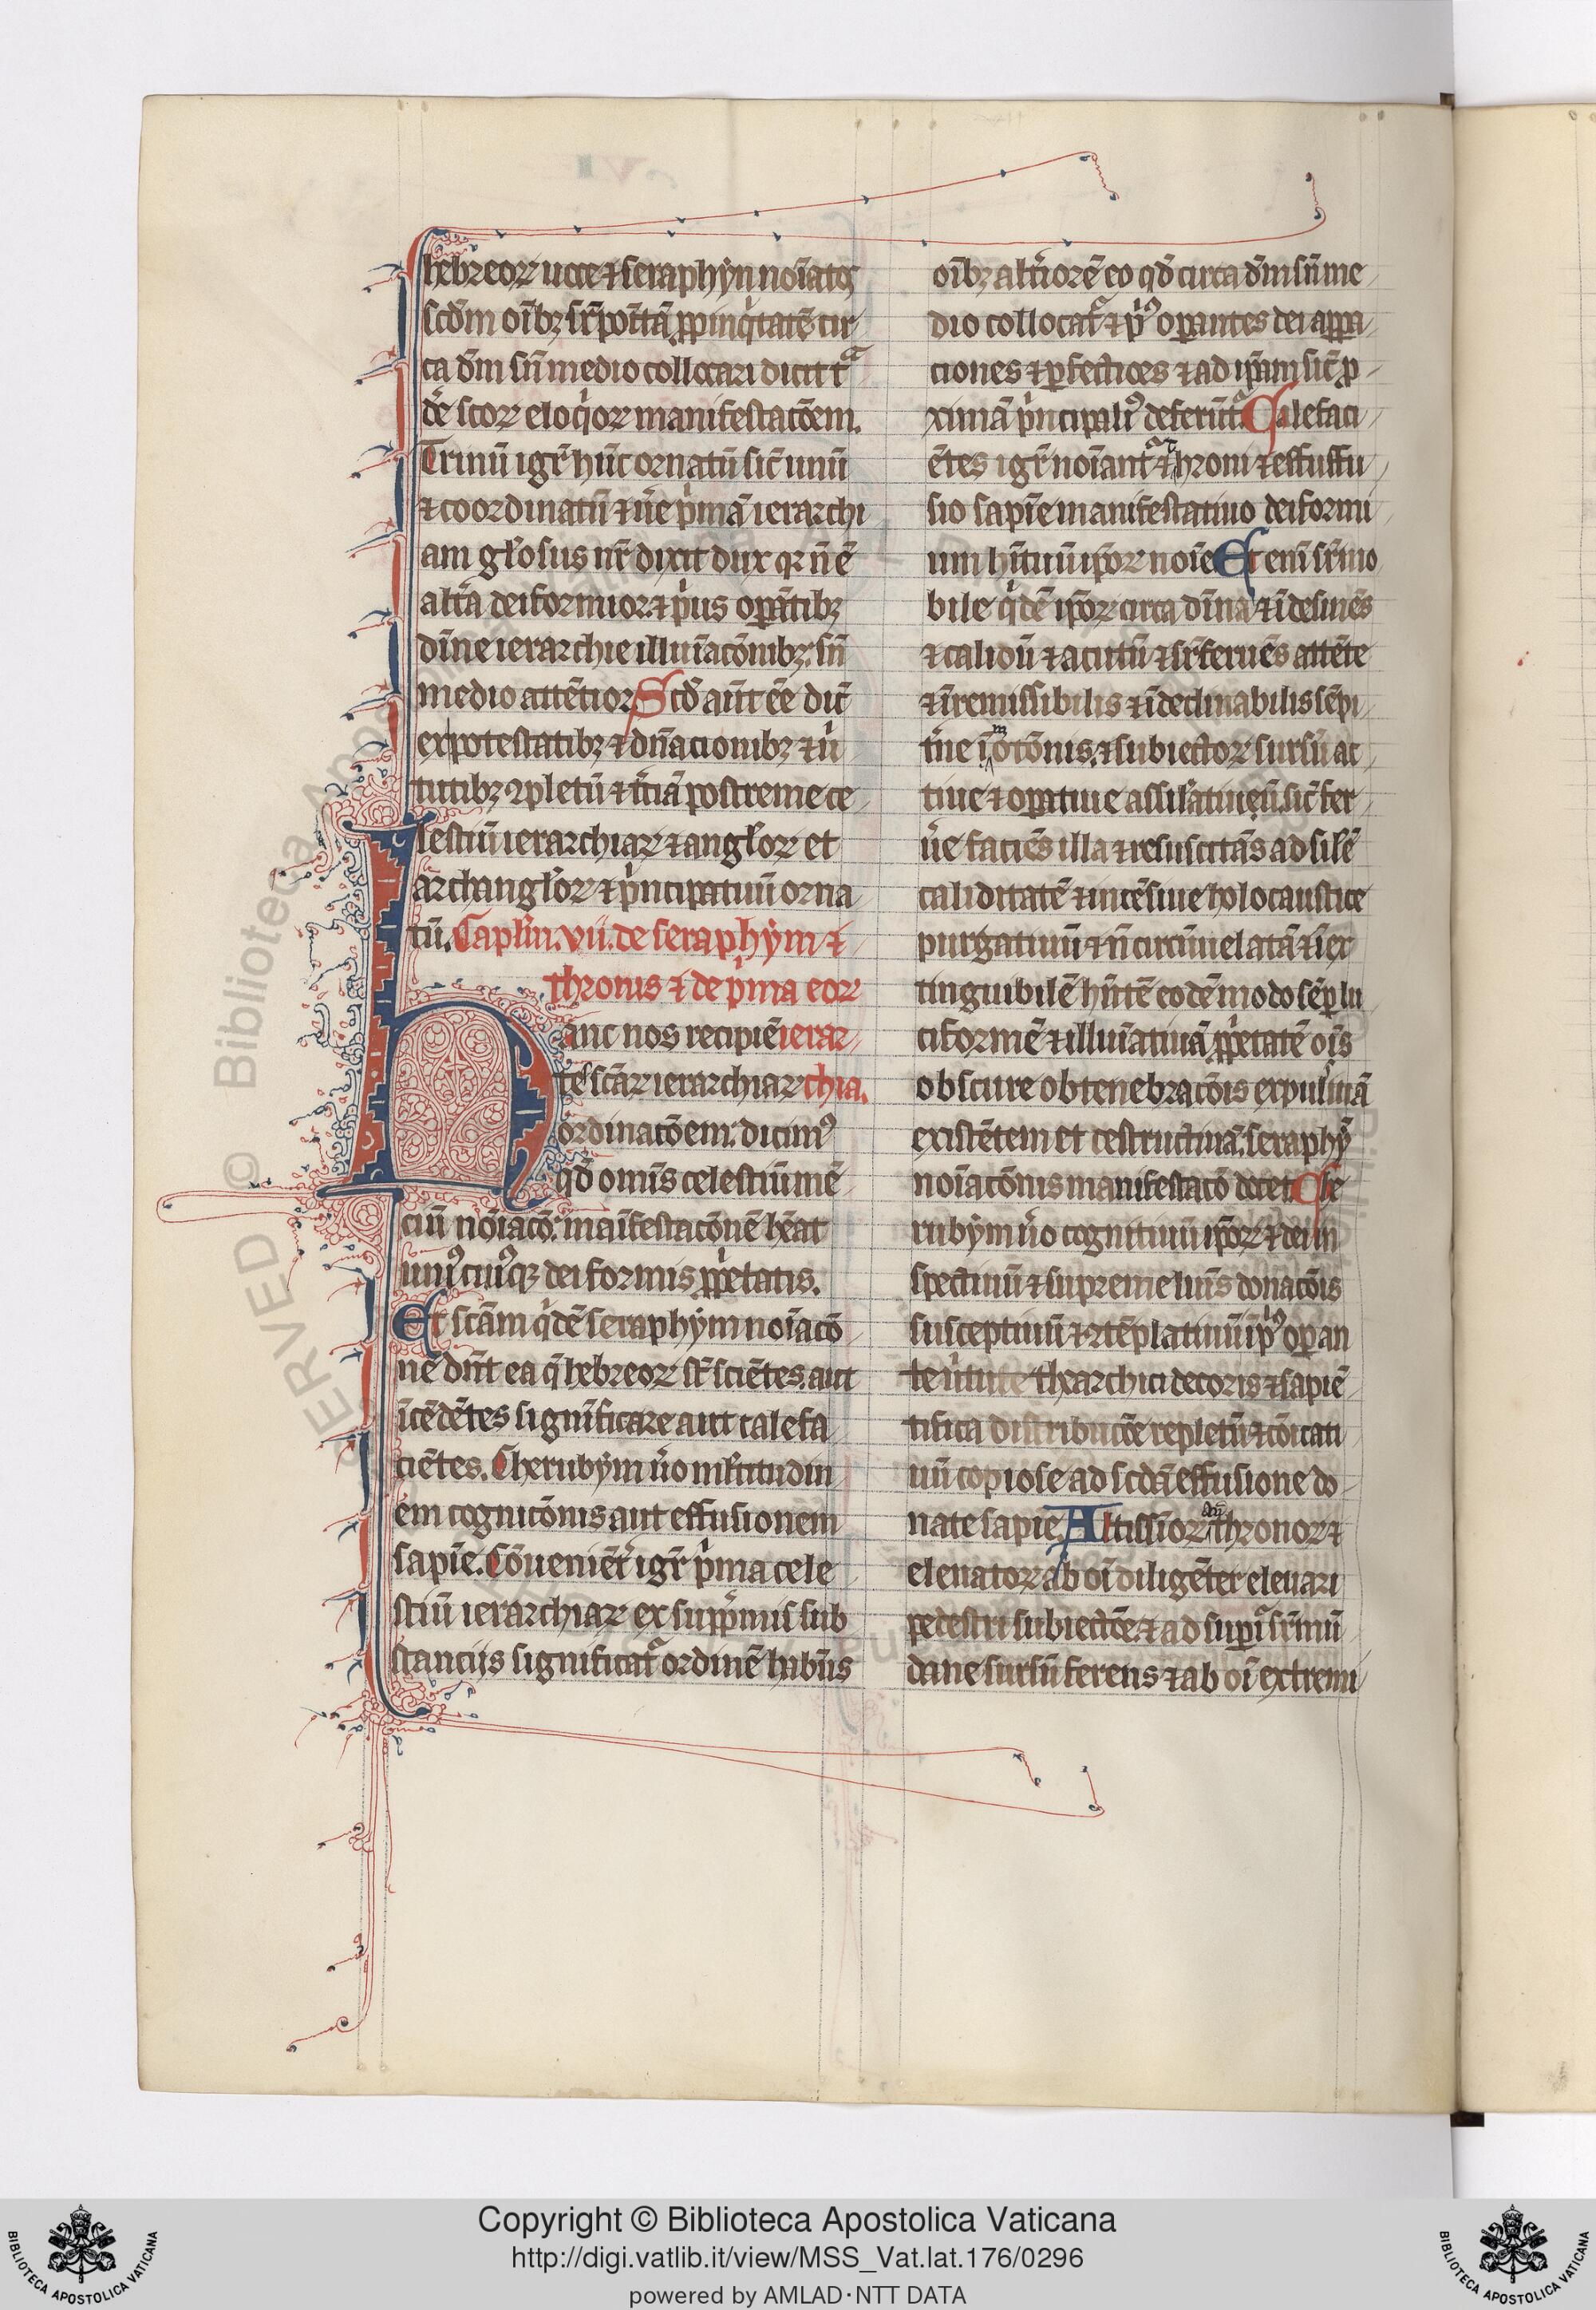 hebreoꝝ uoce ⁊ seraphyn noīatos
scdm oībꝫ suꝑpoītā ꝓpinqⁱtatē cir
ca dm sn̄ medio collocari dicit t͛a
de̾ scoꝝ eloqⁱoꝝ manifestacōem.
Trinū igr̄ hūc ornatū sic̄ unū
⁊ coordinatū ⁊ ue̾ pⁱmā ierarchi
am gl̄osus nr̄ dixit dux qꝫ n̄ ē
altͣa deiformioꝝ ⁊ pⁱus oꝑātibꝫ
dīne ierarchie illuīacōnibꝫ: sn̄
medio attētioꝝ Scd̄ aūt eē dic̄
ex potestatibꝫ ⁊ dn̄acionibꝫ ⁊ uⁱ
tutibꝫ ꝯpletū ⁊ t͛ciā postreme ce
lestiū ierarchiaꝝ ⁊ angl̄oꝝ et
archangl̄oꝝ ⁊ pⁱncipatuū orna
tū. Capl̄m. vii. de seraphym ⁊
thronis ⁊ de pⁱma eoꝝ
Hanc nos recipiē ierar
tes̄ scāꝝ ierarchiaꝝ chia.
ordinacōem. dicimꝰ
qd̄ omīs celestiū mē
ciū noīacō: maīfestacōnē hēat
uniꝰcuiꝰqꝫ deiformis ꝓpⁱetatis.
Et scām qⁱdē seraphym noīacō
nē dn̄t ea q̄ hebreoꝝ st̄ sciētes. aut
īcēdētes significare aut calefa
ciētes. Cherubym u̾o ml̄titudin
em cognicōnis aut effusionem
sapīe. Cōueniēt͛ igr̄ pⁱma cele
stiū ierarchiaꝝ ex suppⁱmis sub
stancijs significat͛ ordinē hn̄bus
oībꝫ altⁱorē eo qd̄ circa dm̄ sn̄ me
dio collocat͛ ⁊ pⁱꝰ oꝑantes dei appa
ciones ⁊ ꝑfectices ⁊ ad ip̄am sic̄ ꝓ
ximā pⁱncipaliꝰ deferūt͛ Calefaci
ētes igr̄ noīant͛ ⁊ throni ⁊ effuffu
sio sapīe manifestatiuo deiformi
um hītuū ip̄oꝝ noīe Et eni sr̄mo
bile qⁱdē ip̄oꝝ circa dīna ⁊ īdesinēs
⁊ calidū ⁊ acutū ⁊ suꝑferuēs attēte
⁊ īremissibilis ⁊ īdeclinabilis sēpi
t͛ne īmotōnis. ⁊ subiectoꝝ sursū ac
tiue ⁊ oꝑatiue assil̄atiuū. sic̄ fer
u̾e faciēs illa ⁊ resuscitās ad sil̄ē
caliditatē ⁊ incēsiue holocaustice
purgatiuū ⁊ n̄ circūuelatā ⁊ īex
tinguibilē hn̄tē eodē modo sēꝑ lu
ciformē ⁊ illuīatiuā ꝓpⁱetatē oīs
obscure obtenebracōis expulsiuā
existētem et destructiuā. seraphȳ
noīacōnis manifestacō docet Che
rubym u̾o cognitiuū ip̄oꝝ ⁊ dei in
spectiuū ⁊ supreme lūis donacōis
susceptiuū ⁊ ꝯtēplatiuū ī pⁱꝰ oꝑan
te uⁱtute thearchici decoris ⁊ sapiē
tifica distribucōe repletū ⁊ cōicati
uū copiose ad scdā effusione do
nate sapīe Altissioꝝ aūt thronoꝝ ⁊
eleuatoꝝ ab oī diligēter eleuari
pedestri subiectōe ⁊ ad suꝑi sr̄mū
dane sursū ferens ⁊ ab oī extremi
Copyright © Biblioteca Apostolica Vaticana
http://digi.vatlib.it/view/MSS_Vat.lat.176/0296
powered by AMLAD·NTT DATA